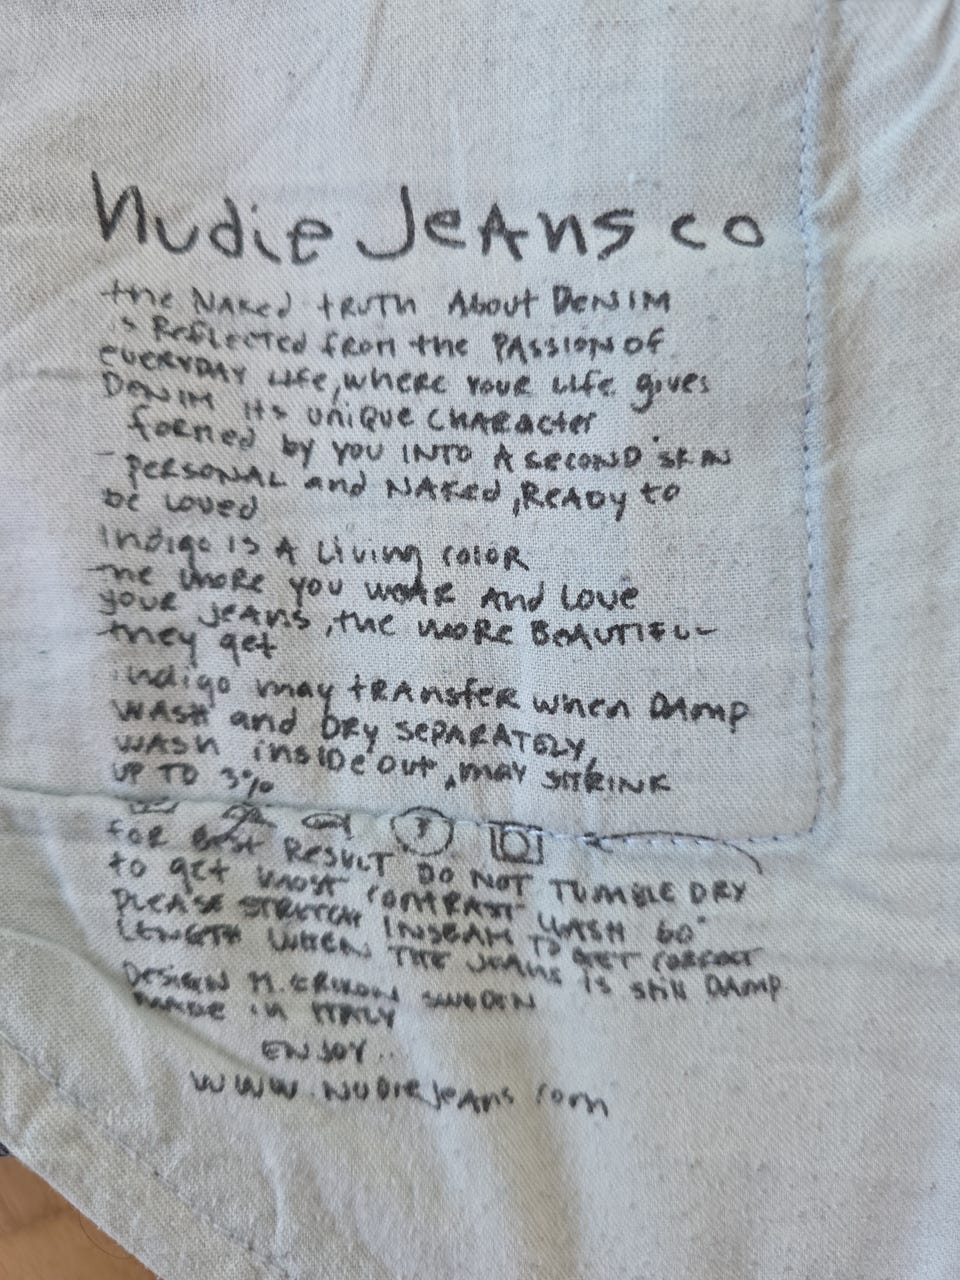 Nudie Jeans co
the NAKed tRUTH About DENIM
is ReflecTed from the PASSION of
EVERYDAY LIFe, where YOUR LIfe gives
DENIM its unique CHARacter
formed by YOU INTO A second SKIN
- PERSONAL and NAKed, READY to
be Loved
Indigo IS A Living coloR
The more you weAR And Love
your Jeans, the moRe BeAUTIFUL
they get
indigo may tRAnsfeR when DAmp
WASH and DRY SEPARATELY,
WASH inside out, may SHRINK
UP TO 3%
foR Best Result DO NOT TUMBLE DRY
to get most CONTRAST WASH 60°
PLEASE STRETCH INSEAM TO GET CORRECT
LENGTH WHEN THE JEANS IS still DAMP.
Design M. ERIXON SWEDEN
MADE in ITALY
ENJOY..
WWW.NudieJeans.com